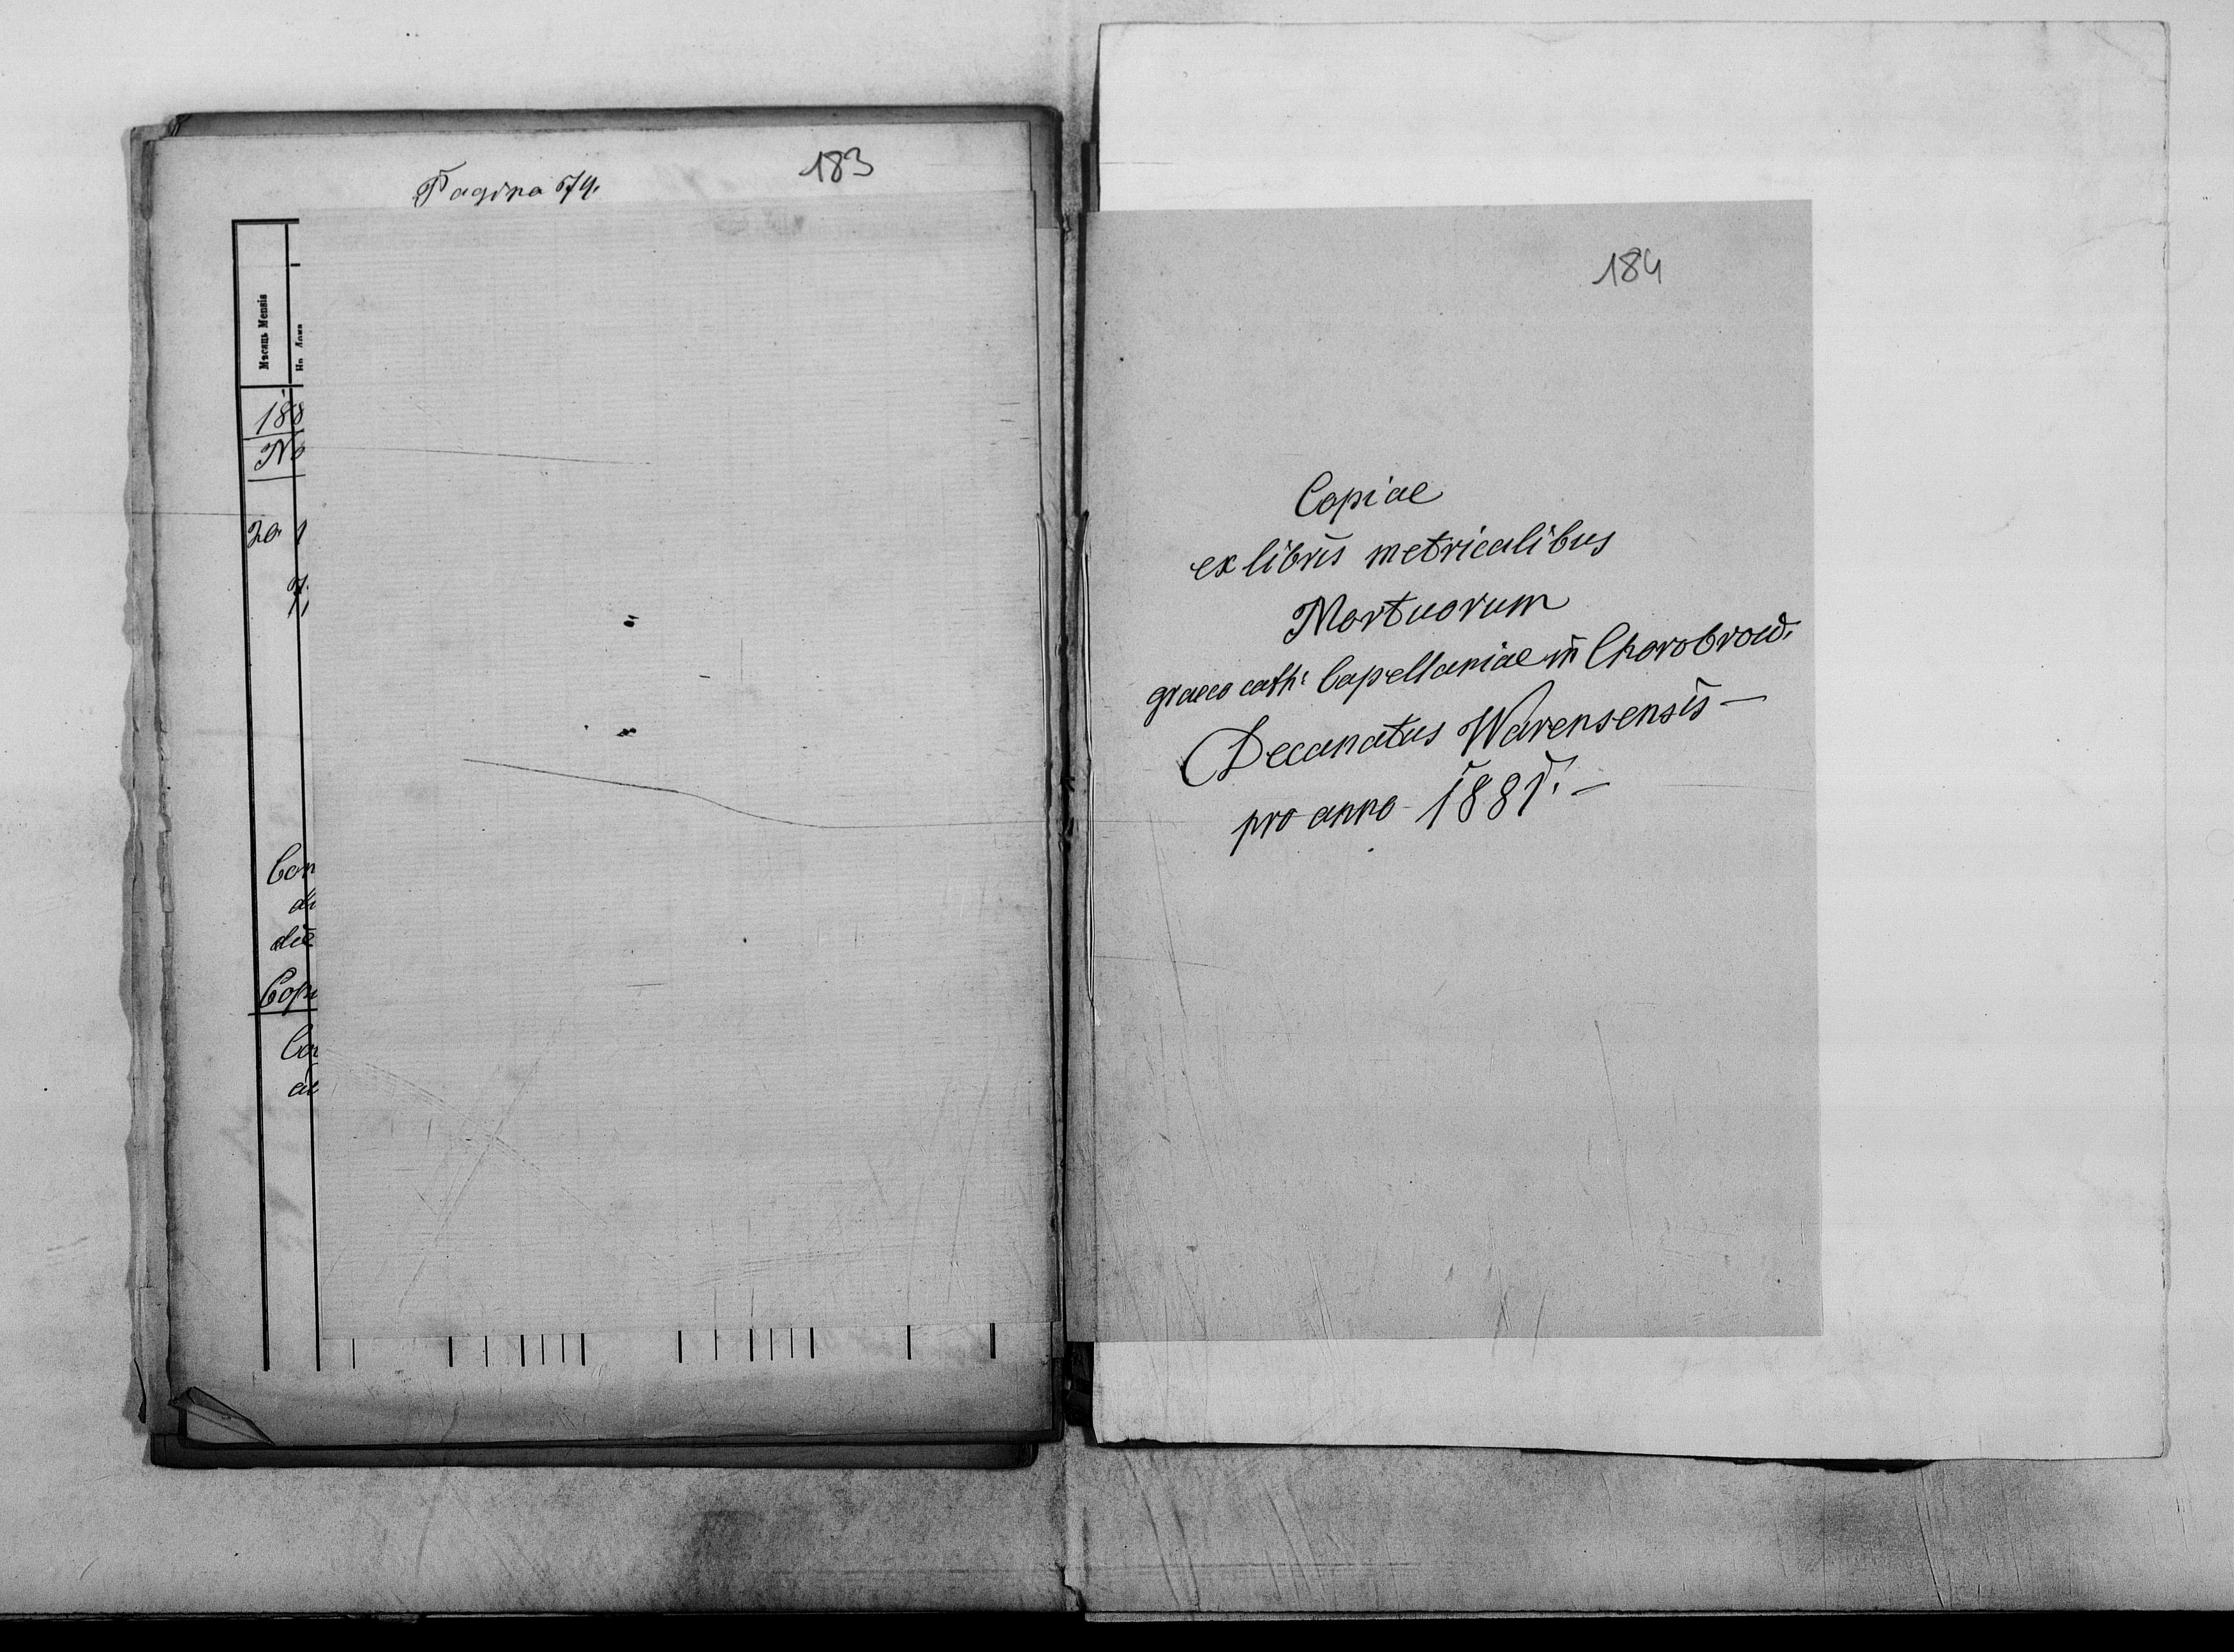 Pagina 679.
183
Мѣсяць Mensis
188
No
20 1
Con
di
die
Copi
Con
184
Copiae
ex libris metricalibus
Mortuorum
graeco cath: Capellaniae in Chorobrow.
Decanatus Warensensis —
pro anno 1881. —